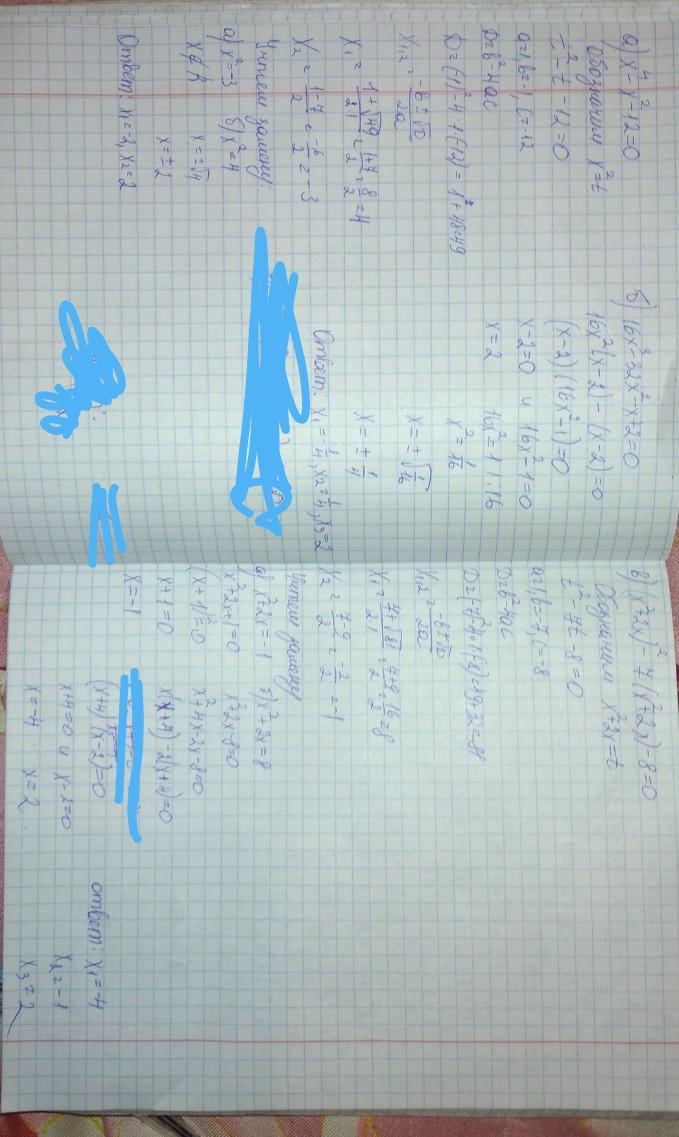 а) x⁴-x²-12=0
Обозначим x²=t
t²-t-12=0
a=1, b=-1, c=-12
D=b²-4ac
D=(-1)²-4·1·(-12)=1²+48=49
x₁,₂ = (-b±√D)/2a
x₁ = (1+√49)/2·1 = (1+7)/2 = 8/2 = 4
x₂ = (1-7)/2 = -6/2 = -3
Учтем замену:
а) x²=-3 б) x²=4
x∉R x=±√4
x=±2
Ответ: x₁=-2, x₂=2
б) 16x³-32x²-x+2=0
16x²(x-2)-(x-2)=0
(x-2)(16x²-1)=0
x-2=0 и 16x²-1=0
x=2 16x²=1 |:16
x²=1/16
x=±√1/16
x=±1/4
Ответ: x₁=-1/4, x₂=1/4, x₃=2
в) (x²+2x)²-7(x²+2x)-8=0
Обозначим x²+2x=t
t²-7t-8=0
a=1, b=-7, c=-8
D=b²-4ac
x₁,₂ = (-b±√D)/2a
x₁ = (7+√81)/2·1 = (7+9)/2 = 16/2 = 8
x₂ = (7-9)/2 = -2/2 = -1
Учтем замену
а) x²+2x=-1 б) x²+2x=8
x²+2x+1=0 x²+2x-8=0
(x+1)²=0 x²+4x-2x-8=0
x+1=0 x(x+4)-2(x+4)=0
x=-1
(x+4)(x-2)=0
x+4=0 и x-2=0
x=-4 x=2
ответ: x₁=-4
x₂=-1
x₃=2